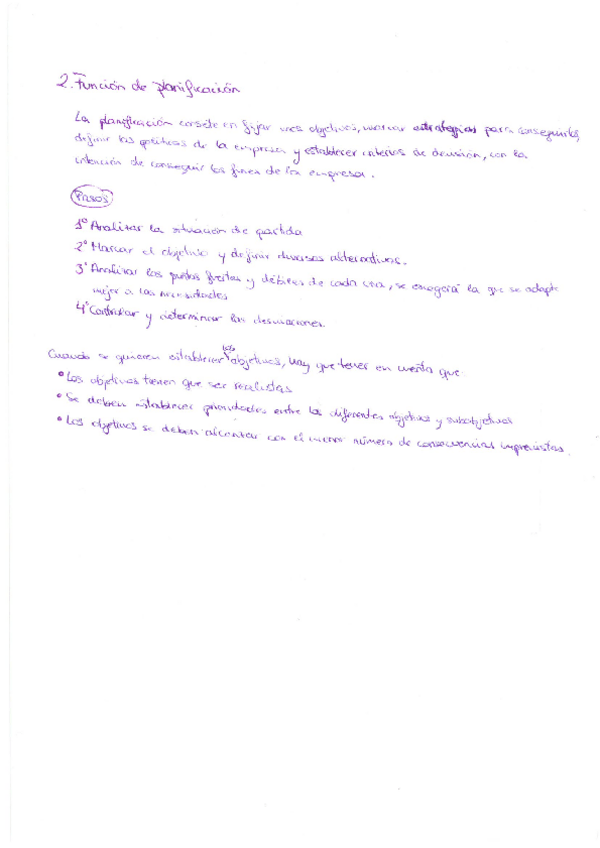 2. Función de planificación
La planificación consiste en fijar unos objetivos, marcar estrategias para conseguirlos,
definir las políticas de la empresa y establecer criterios de decisión, con la
intención de conseguir los fines de la empresa.
Pasos
1º Analizar la situación de partida
2º Marcar el objetivo y definir diversas alternativas.
3º Analizar los puntos fuertes y débiles de cada una, se escogerá la que se adapte
mejor a las necesidades
4º Controlar y determinar las desviaciones.
Cuando se quieren establecer los objetivos, hay que tener en cuenta que:
• Los objetivos tienen que ser realistas
• Se deben establecer prioridades entre los diferentes objetivos y subobjetivos
• Los objetivos se deben alcanzar con el menor número de consecuencias imprevistas.